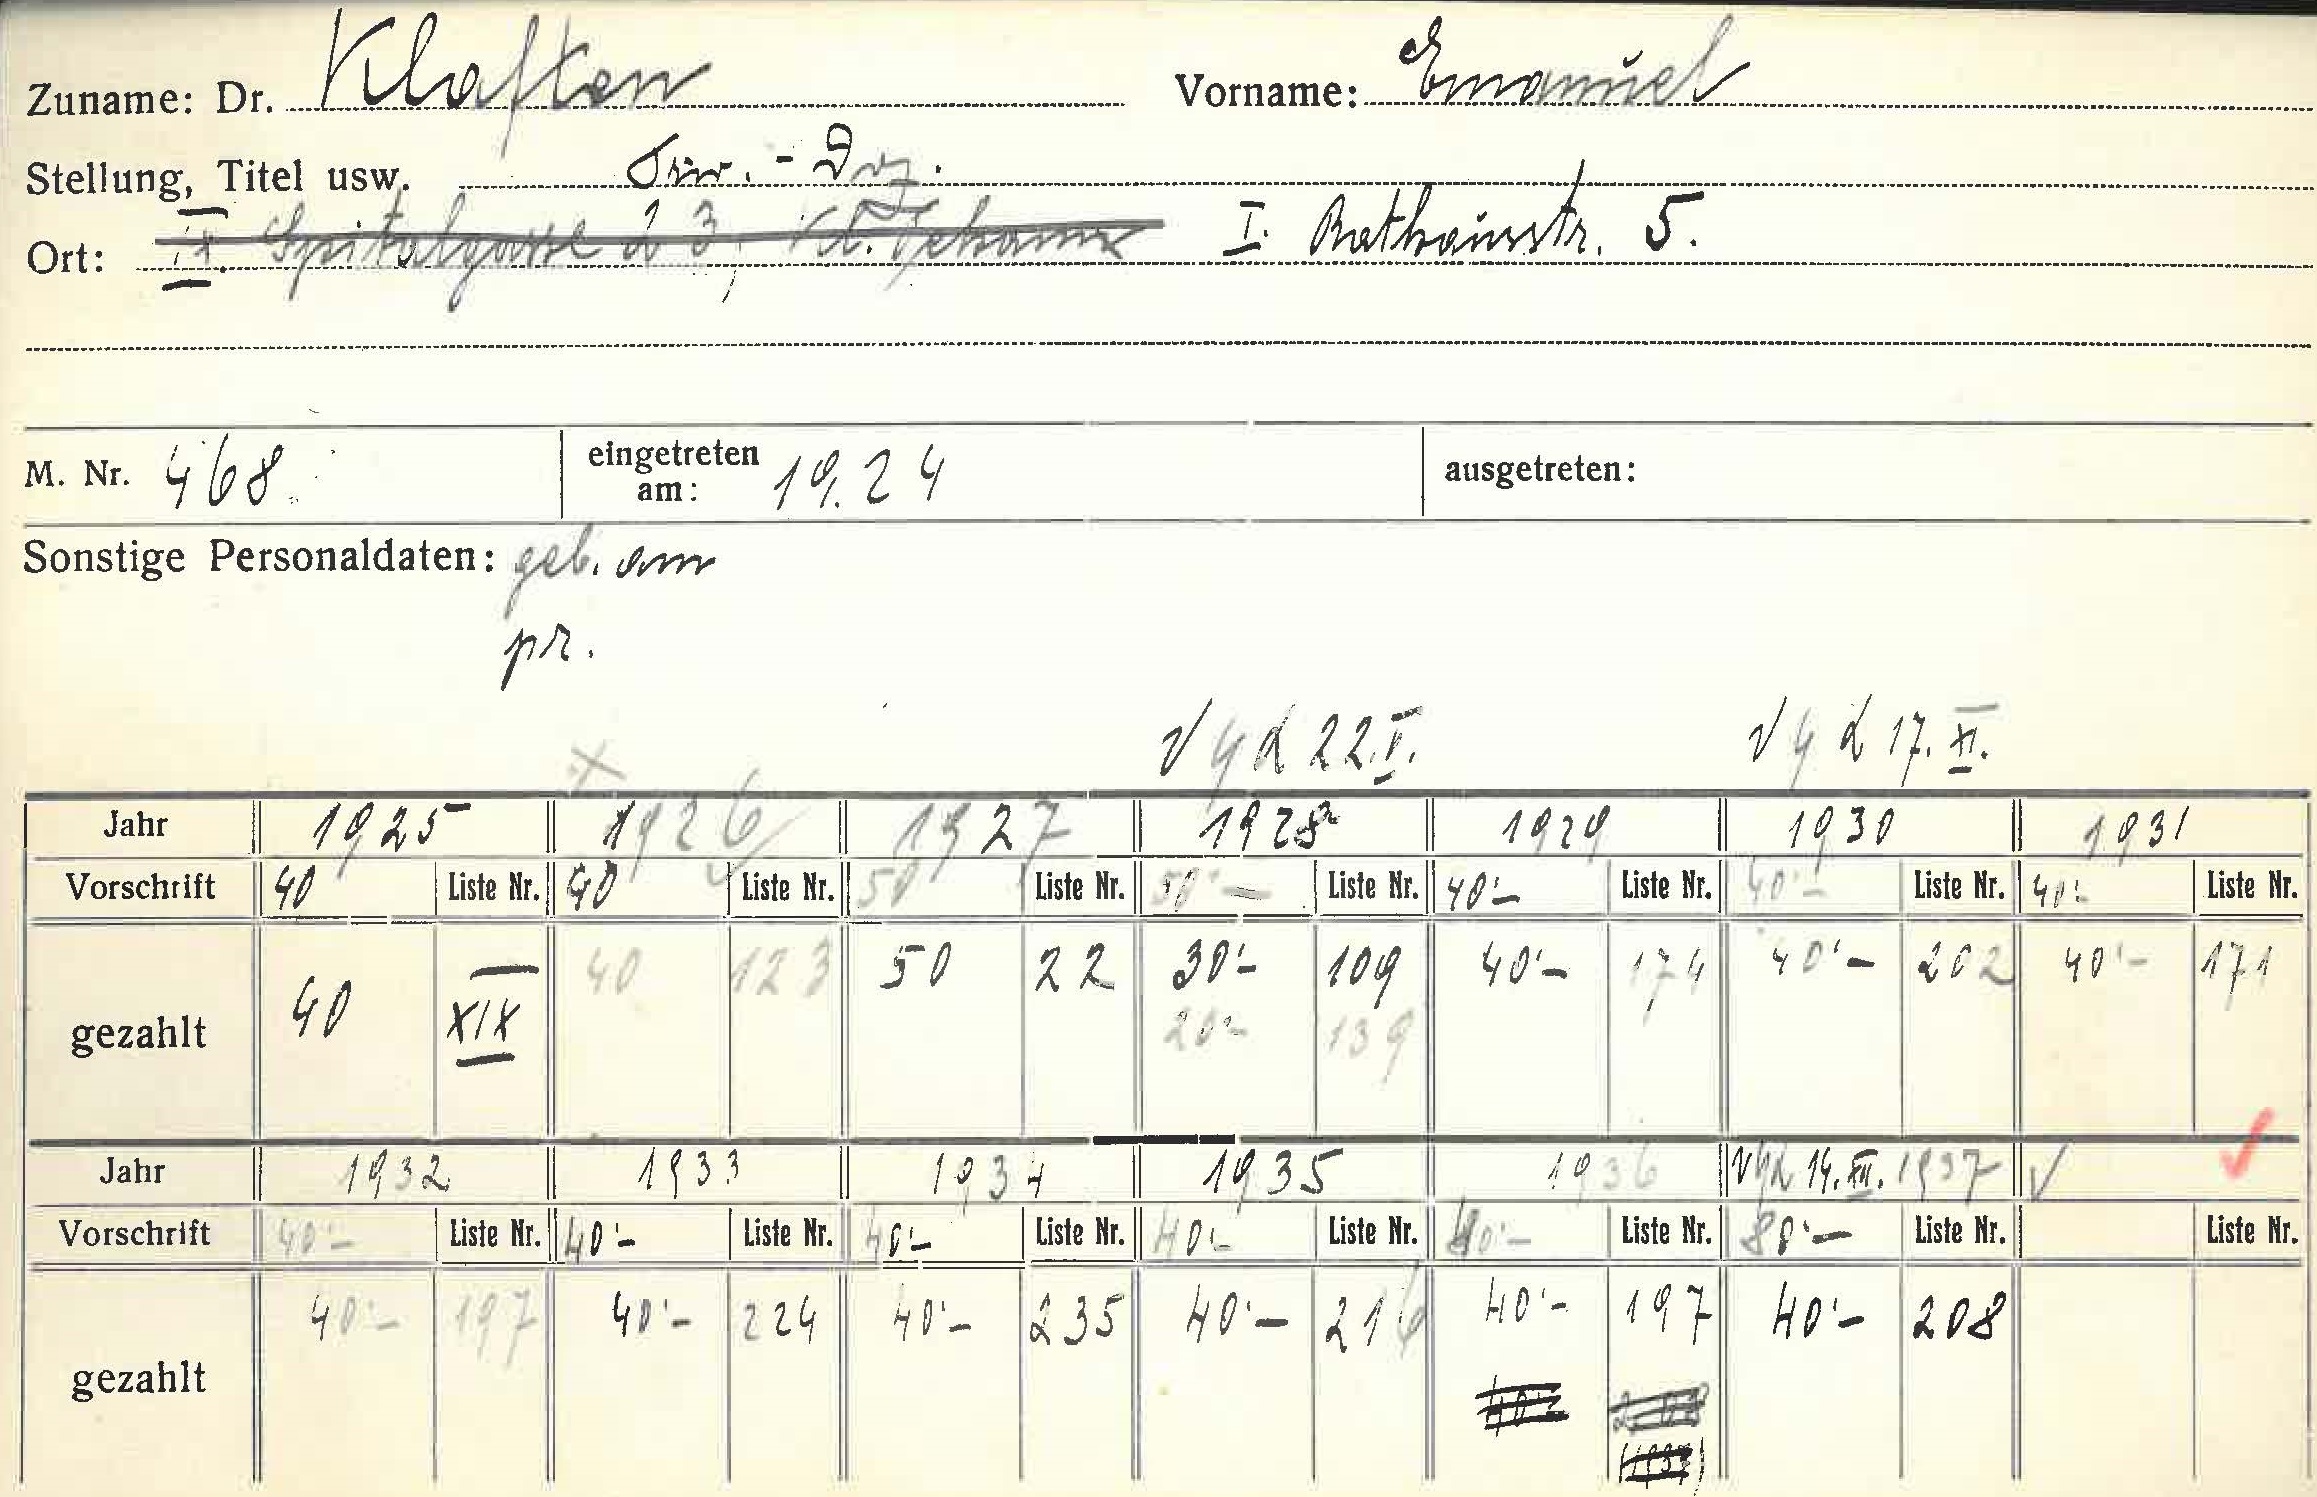 Zuname: Dr. Klaften Vorname: Emanuel
Stellung, Titel usw. Priv. - Doz.
Ort: IX. Spitalgasse 23, Kl. I. Rathausstr. 5.
M. Nr. 468. eingetreten am: 1924 ausgetreten:
Sonstige Personaldaten: geb. am
pr.
22.V. 17. XI.
Jahr 1925 1926 1927 1928 1929 1930 1931
Vorschrift 40 Liste Nr. 40 Liste Nr. 50 Liste Nr. 50'- Liste Nr. 40'- Liste Nr. 40'- Liste Nr. 40'- Liste Nr.
gezahlt 40 XIX 40 123 50 22 30'- 109 40'- 174 40'- 202 40'- 171
20'- 139
Jahr 1932 1933 1934 1935 1936 14. XII. 1937 √
Vorschrift 40'- Liste Nr. 40'- Liste Nr. 40'- Liste Nr. 40'- Liste Nr. Liste Nr. 80'- Liste Nr. Liste Nr.
gezahlt 40'- 197 40'- 224 40'- 235 40'- 216 40'- 197 40'- 208